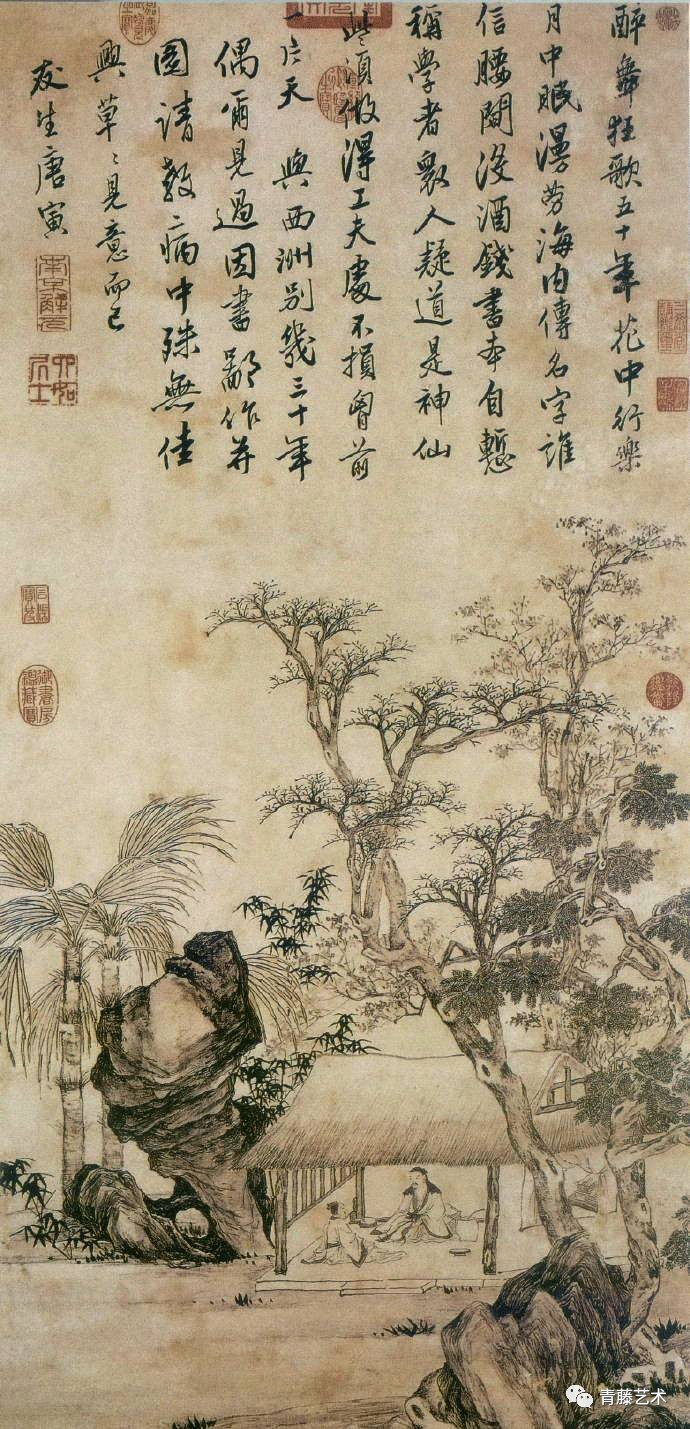 醉舞狂歌五十年花中行樂
月中眠漫勞海内傳名字誰
信腰間没酒錢書本自慙
稱學者衆人疑道是神仙
些須做得工夫處不損胷前
一片天 與西洲别幾三十年
偶爾見過因書鄙作并
圖請教病中殊無佳
興草〻見意而已
友生唐寅
南京解元
六如居士
青藤艺术